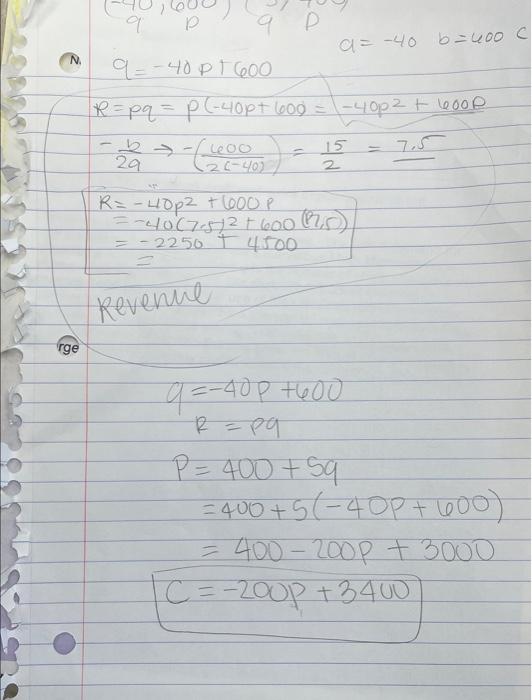 q p q p
a = -40 b = 600 C
N.
q = -40p + 600
R = pq = p(-40p + 600) = -40p2 + 600p
-b/2a → -(600/2(-40)) = 15/2 = 7.5
R = -40p2 + 600p
= -40(7.5)2 + 600(7.5)
= -2250 + 4500
=
Revenue
rge
q = -40p + 600
R = pq
P = 400 + 5q
= 400 + 5(-40p + 600)
= 400 - 200p + 3000
C = -200p + 3400